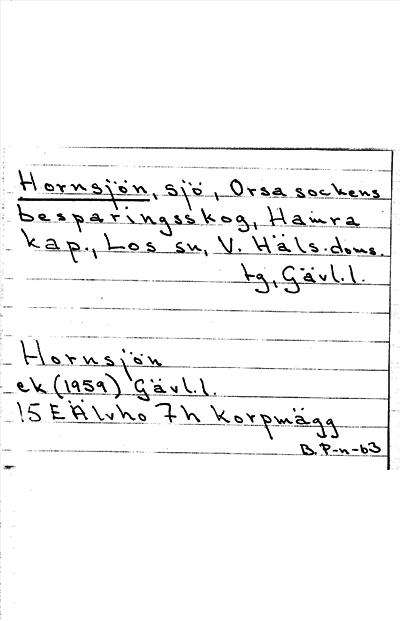 Hornsjön, sjö, Orsa sockens
besparingsskog, Hamra
kap., Los sn, V. Häls. doms.
tg, Gävl.l.
Hornsjön
ek (1959) Gävl.l.
15 E Älvho 7h Korpmägg
B. P-n-63